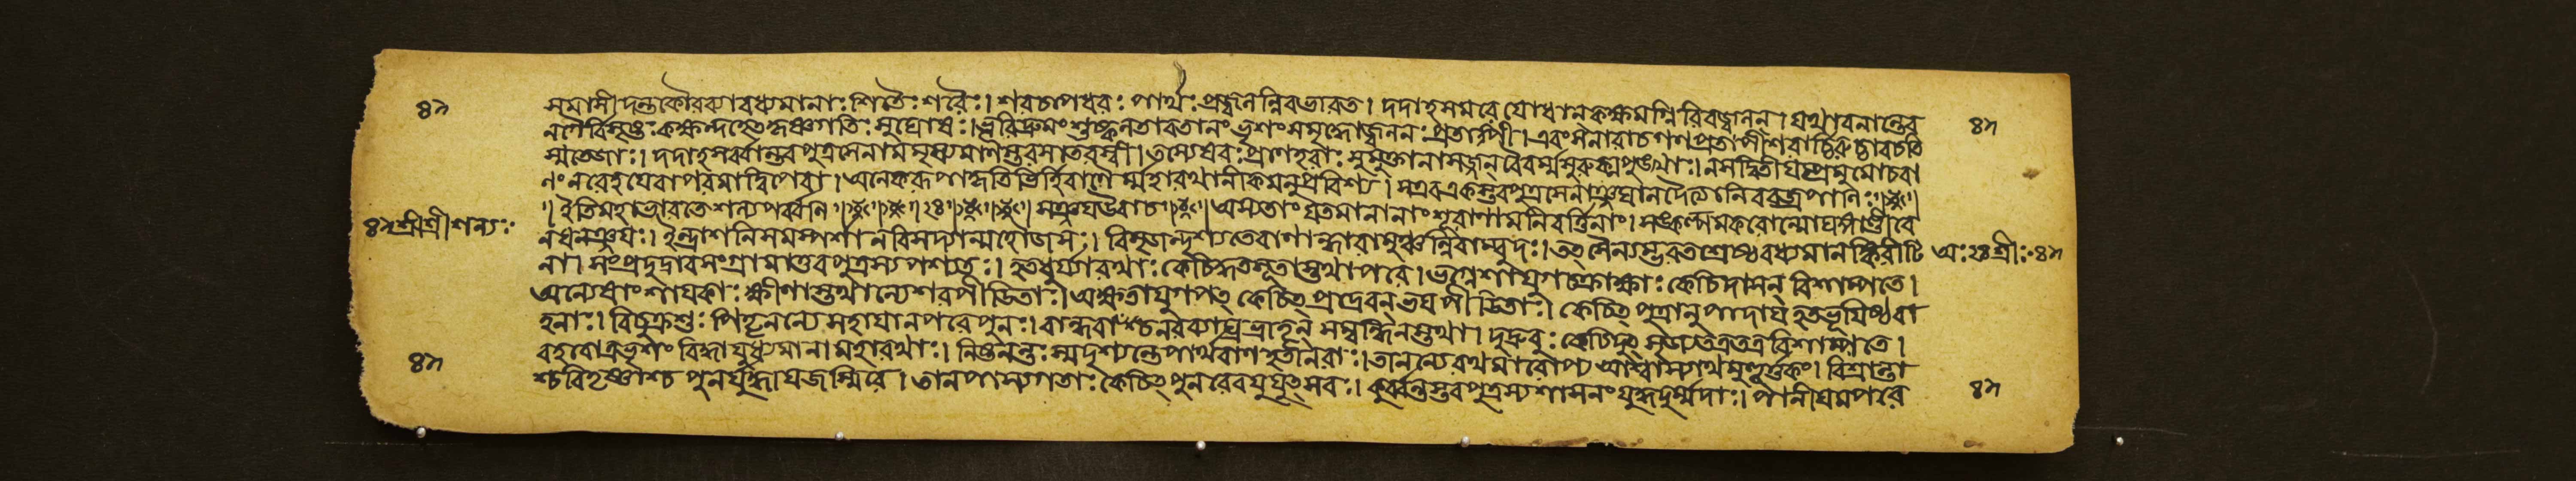 সমাসীদন্তকৌরব্যাবধ্যমানাঃ শিতৈঃ শরৈঃ। শরচাপধরঃ পার্থঃ প্রজ্বলন্নিবভারত। দদাহ সমরে যোধান্ কক্ষমগ্নিরিবজ্বলন্। যথাবনান্তেব
নগৈর্বিসৃষ্টঃ কক্ষন্দহেৎকৃষ্ণগতিঃ সুঘোষঃ। ভূরিদ্রুমং শুষ্কলতাবতানং ভৃশং সমৃদ্ধোজ্বলনঃ প্রতাপী। এবং সনারাচগণপ্রতাপী শরার্চ্চিরুচ্চাবচতি
গ্মতেজাঃ। দদাহ সর্ব্বান্তবপুত্রসেনামমৃষ্যমাণস্তরসাতরস্বী। তস্যেষবঃ প্রাণহরাঃ সুমুক্তানাসজ্জন্ বৈবর্ম্মসুরুক্মপুঙ্খাঃ। নসদ্বিতীয়ম্প্রমুমোচবা
ণং নরেহয়েবাপরমাদ্বিপেবা। অনেকরূপাকৃতিভির্হিবাণৈর্ম্মহারথানীকমনুপ্রবিশ্য। সএবএকস্তবপুত্রসেনাঞ্জঘানদৈত্যানিববজ্রপাণিঃ।
॥ ইতিমহাভারতে শল্যপর্ব্বণি ॥ ২৪ ॥ সঞ্জয়উবাচ ॥ অস্যতাং যতমানানাং শূরাণামনিবর্ত্তিনাং। সঙ্কল্পমকরোন্মোঘঙ্গাণ্ডীবে
৪৯ শ্রীশ্রীশল্যঃ
নধনঞ্জয়ঃ। ইন্দ্রাশনিসমস্পর্শানবিসহ্যান্মহৌজসঃ। বিসৃজন্দৃশ্যতেবাণান্ধারামুঞ্চন্নিবাম্বুদঃ। তৎসৈন্যম্ভরতশ্রেষ্ঠবধ্যমানঙ্কিরীটি
না। সংপ্রদুদ্রাবসংগ্রামাত্তবপুত্রস্যপশ্যতঃ। হতধুর্য্যারথাঃ কেচিদ্ধতসূতাস্তথাপরে। ভগ্নেশাযুগচক্রাক্ষাঃ কেচিদাসন্ বিশাম্পতে।
অন্যেষাং শায়কাঃ ক্ষীণাস্তথান্যেশরপীড়িতাঃ। অক্ষতাযুগপৎ কেচিৎ প্রাদ্রবন্ ভয়পীড়িতাঃ। কেচিৎ পুত্রানুপাদায় হতভূয়িষ্ঠবা
হনাঃ। বিচুক্রুশুঃ পিতৄনন্যেসহায়ানপরেপুনঃ। বান্ধবাংশ্চনরব্যাঘ্রভ্রাতৄন্ সম্বন্ধিনস্তথা। দুদ্রুবুঃ কেচিদুৎসৃজ্যতত্রতত্রবিশাম্পতে।
বহবোত্রভৃশং বিদ্ধামুহ্যমানামহারথাঃ। নিষ্টনন্তঃ স্মদৃশ্যন্তেপার্থবাণহতানরাঃ। তানন্যেরথমারোপ্য আশ্বাস্যাথমুহূর্ত্তকং। বিশ্রান্তা
শ্চবিতৃষ্ণাশ্চ পুনর্যুদ্ধায়জগ্মিরে। তানপাস্যগতাঃ কেচিৎ পুনরেবযুযুৎসবঃ। কুর্ব্বন্তস্তবপুত্রস্যশাসনং যুদ্ধদুর্ম্মদাঃ। পানীয়মপরে
৪৯
৪৯
৪৯
৪৯